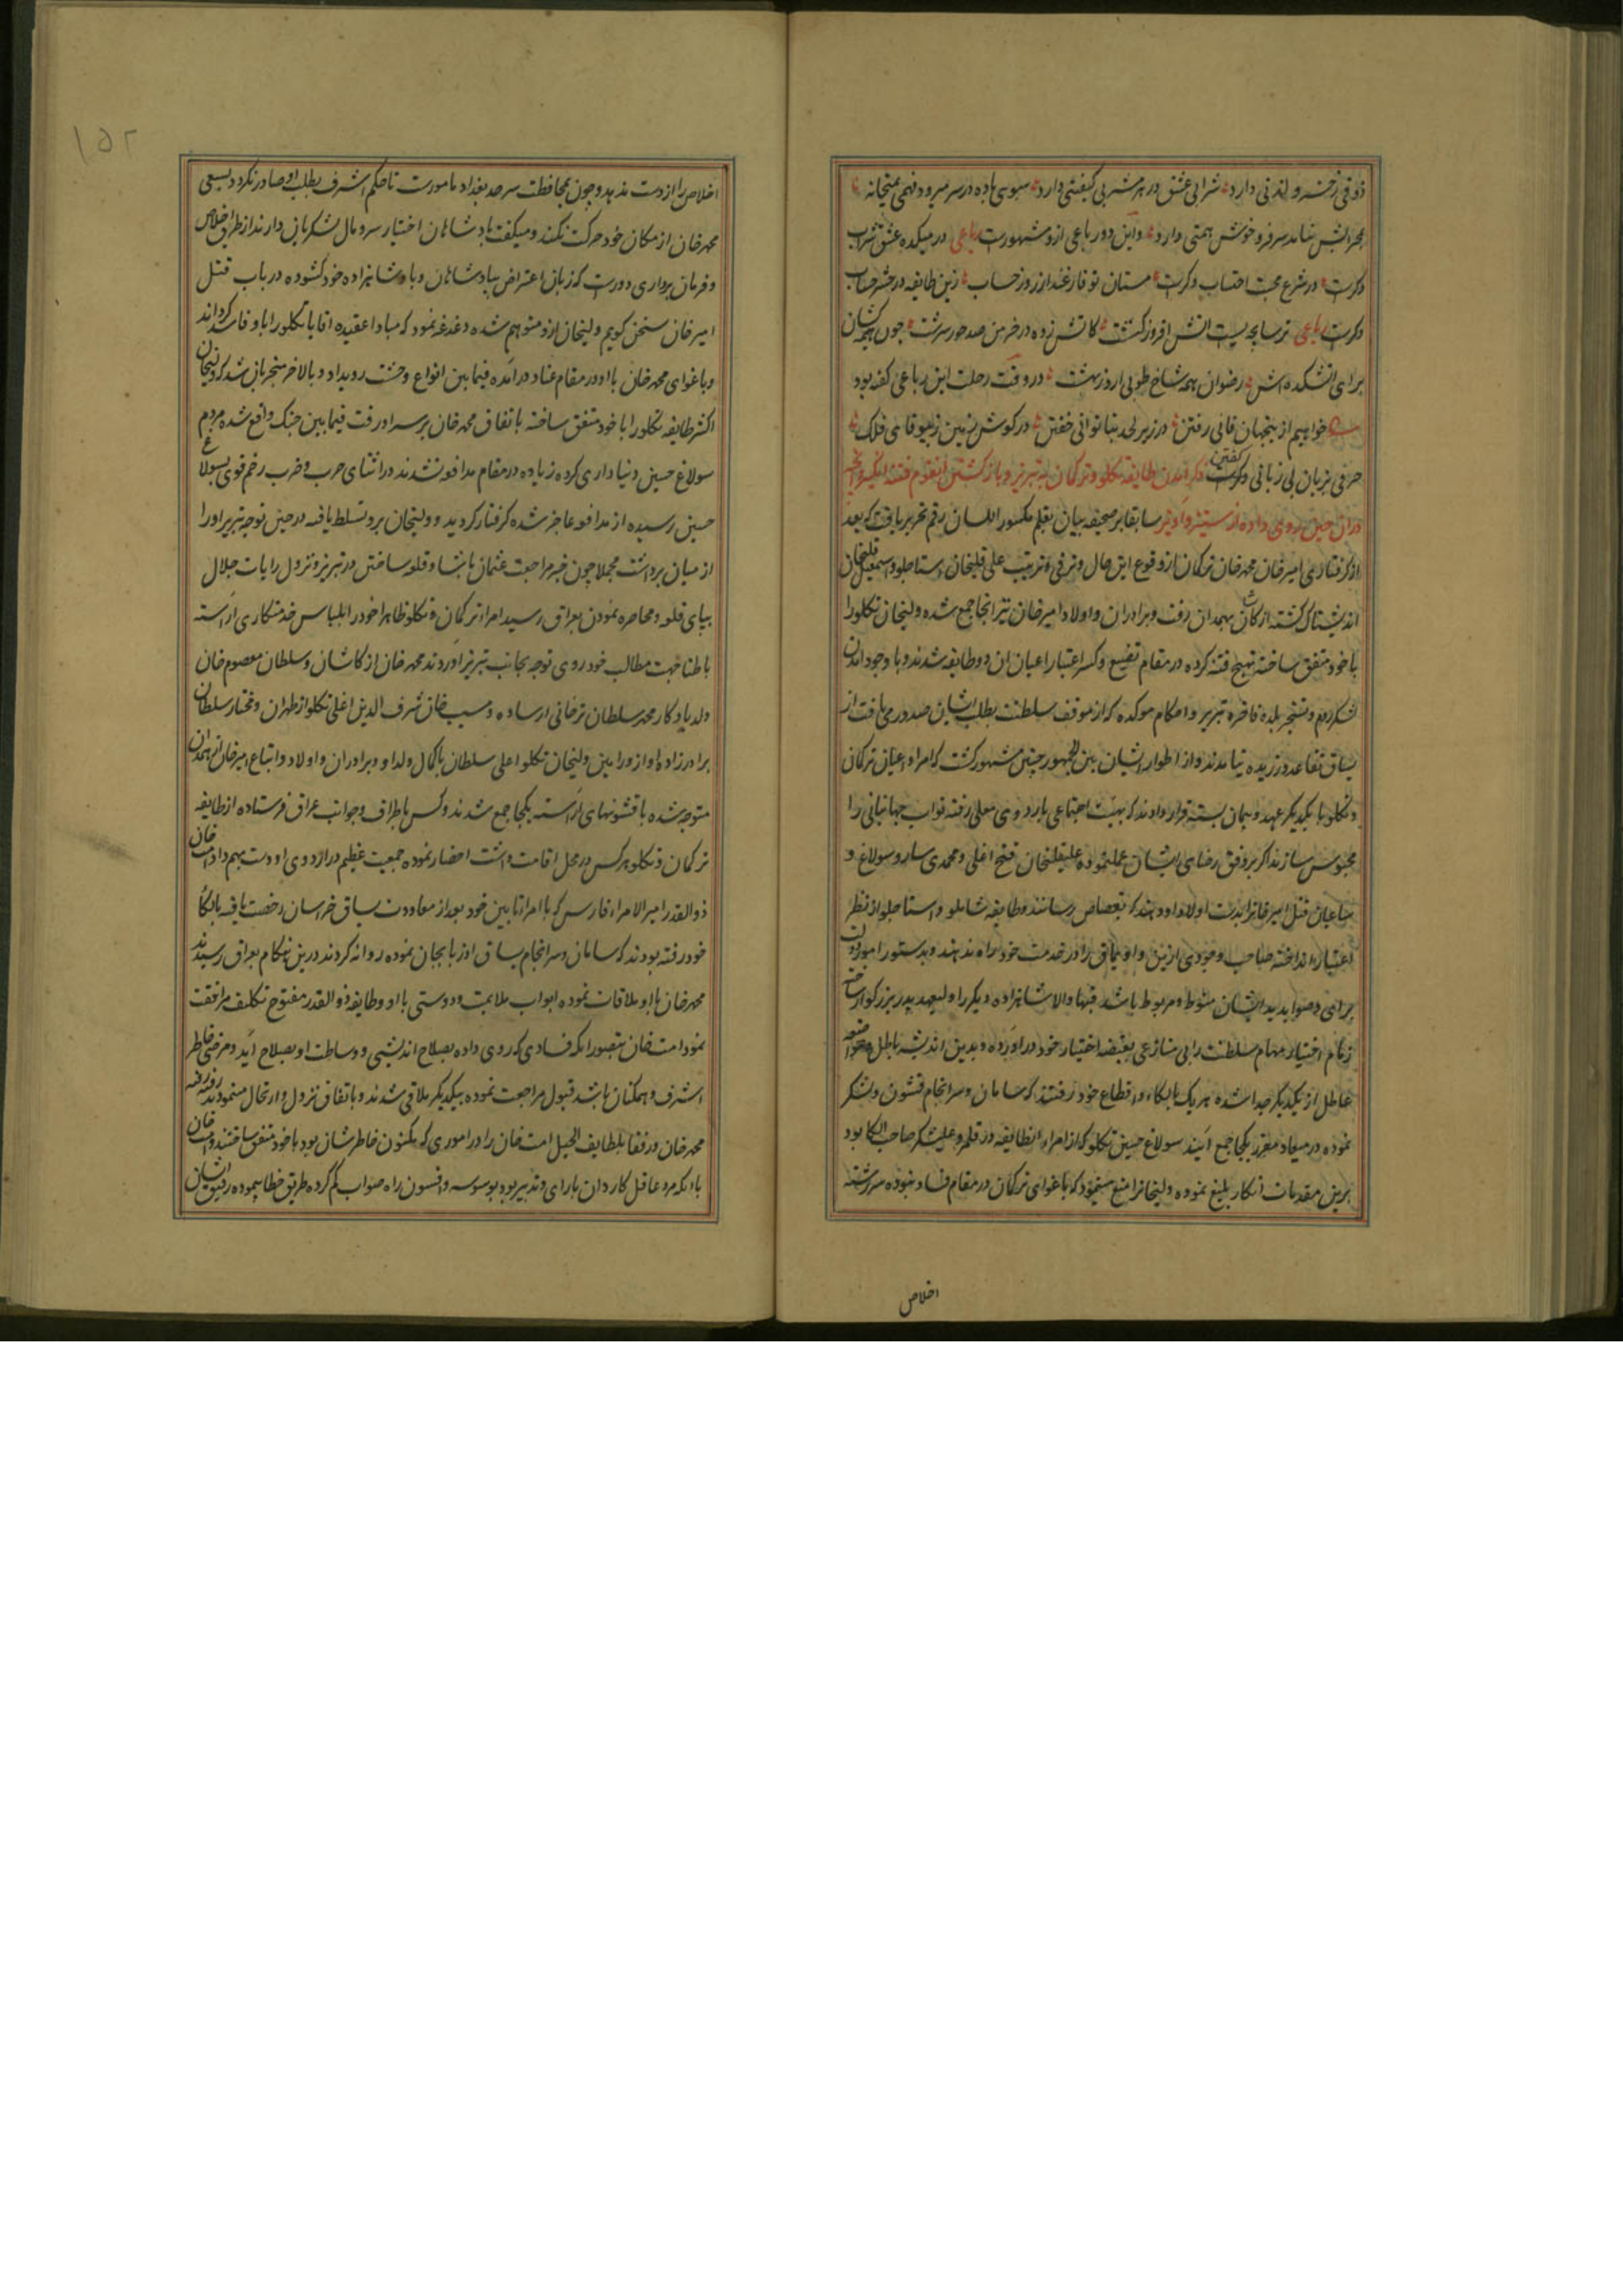 ذوقی زخسرو لذتی دارد شرابی عشق در هر مشربی کیفیتی دارد سبوی باده در سر میرود فهمی بمیخانه
بمحرابش نیامد سر فرو خوش همتی دارد و این دو رباعی ازو مشهورست رباعی در میکده عشق شراب
دگرست در شرع محبت احتساب دگرست مستان تو فارغند از روز حساب زین طایفه در حشر حساب
دگرست رباعی ترسابچه‌یست اتش افروز کنشت کاتش زده در خرمن صد حور سرشت چون هیمه کشان
برای اتشکده‌اش رضوان همه شاخ طوبی ارد ز بهشت در وقت رحلت این رباعی گفته بود
خواهیم ازینجهان فانی رفتن در زیر لحد بناتوانی خفتن در گوش زمین ز بیوفائی فلک
حرفی بزبان بی زبانی گفتن ذکر آمدن طایفه تکلو و ترکمان به تبریز و بازگشتن آنقوم فتنه انگیز و آنچه
در ان حین روی داده از ستیز و آویز سابقا بر صحیفه بیان بقلم مکسور اللسان رقم تحریر یافت که بعد
از گرفتاری امیرخان محمدخان ترکمان از وقوع این حال و ترقی و تربیت علی قلیخان استاجلو و اسمعیل قلیخان
اندیشناک گشته از کاشان بهمدان رفت و برادران و اولاد امیرخان نیز انجا جمع شده و ولیخان تکلو را
با خود متفق ساخته تهیج فتنه کرده در مقام تضییع و کسر اعتبار اعیان ان دو طایفه شدند و با وجود امدن
لشکر روم و تسخیر بلده فاخره تبریز و احکام موکده که از موقف سلطنت بطلب ایشان صدور می یافت از
یساق تقاعد ورزیده نیامدند و از اطوار ایشان بین الجمهور چنین مشهور گشت که امراء و اعیان ترکمان
و تکلو با یکدیگر عهد و پیمان بسته قرار دادند که بهیئت اجتماعی باردوی معلی رفته نواب جهانبانی را
محبوس سازند اگر بر وفق رضای ایشان عملنموده علیقلیخان فتح اغلی و محمدی سارو سولاغ و
ساعیان قتل امیرخانرا بدست اولاد او دهد که بقصاص رسانند و طایفه شاملو و استاجلو از نظر
اعتبار انداخته صاحب وجودی ازین دو اویماق را در خدمت خود راه ندهند و بدستور امور دولت
برای و صوابدید ایشان منوط و مربوط باشد فبها و الا شاهزاده دیگر را ولیعهد پدر بزرگوار ساخته
زمام اختیار مهام سلطنت را بی منازعی بقبضه اختیار خود دراورده و بدین اندیشه باطل
عاطل از یکدیگر جدا شده هر یک بالکاء و اقطاع خود رفتند که سامان و سرانجام قشون و لشکر
نموده در میعاد مقرر یکجا جمع آیند سولاغ حسین تکلو که از امراء انطایفه و در قلمرو علیشکر صاحب الکا بود
برین مقدمات انکار بلیغ نموده ولیخانرا منع مینمود که باغوای ترکمان در مقام فساد نبوده سررشته
اخلاص
۱۵۲
اخلاص را از دست ندهد و چون بمحافظت سرحد بغداد مامورست تا حکم اشرف بطلب او صادر نگردد بسعی
محمدخان از مکان خود حرکت نکند و میگفت پادشاهان اختیار سر و مال لشکریان دارند از طریق اخلاص
و فرمان برداری دورست که زبان اعتراض بپادشاهان و پادشاهزاده خود گشوده در باب قتل
امیرخان سخن گویم ولیخان ازو متوهم شده دغدغه نمود که مبادا عقیده اقایان تکلو را با او فاسد گرداند
و باغوای محمدخان با او در مقام عناد درآمده فیما بین انواع وحشت رویداد و بالاخر منجر بان شد که ولیخان
اکثر طایفه تکلو را با خود متفق ساخته باتفاق محمدخان بر سر او رفت فیما بین جنگ واقع شده مردم
سولاغ حسین دنیاداری کرده زیاده در مقام مدافعه نشدند در اثنای حرب و ضرب زخم قوی بسولاغ
حسین رسیده از مدافعه عاجز شده گرفتار گردید و ولیخان برو تسلط یافته در حین توجه تبریز او را
از میان برداشت مجملا چون خبر مراجعت عثمان پاشا و قلعه ساختن در تبریز و نزول رایات جلال
بپای قلعه و محاصره نمودن بعراق رسید امراء ترکمان و تکلو ظاهرا خود را بلباس خدمتکاری آراسته
باطنا جهت مطالب خود روی توجه بجانب تبریز اوردند محمدخان از کاشان و سلطان معصوم خان
ولد یادگار محمد سلطان ترخانی از ساوه و مسیب خان شرف الدین اغلی تکلو از طهران و مختار سلطان
برادرزاده او از ورامین و ولیخان تکلو و علی سلطان پاکمال ولد او و برادران و اولاد و اتباع امیرخان از همدان
متوجه شده با قشونهای آراسته یکجا جمع شدند و کس باطراف و جوانب عراق فرستاده از طایفه
ترکمان و تکلو هر کس در محل اقامت داشت احضار نموده جمعیت عظیم در اردوی او دست بهم داد امت خان
ذوالقدر امیرالامراء فارس که با امراء تابین خود بعد از معاودت یساق خراسان رخصت یافته بالکاء
خود رفته بودند که سامان و سرانجام یساق اذربایجان نموده روانه گردند درین هنگام بعراق رسیدند
محمدخان با او ملاقات نموده ابواب ملایمت و دوستی با او و طایفه ذوالقدر مفتوح تکلیف مرافقت
نمود امت خان بتصور انکه فسادی که روی داده بصلاح اندیشی و وساطت او بصلاح آید و مرضی خاطر
اشرف و همگنان باشد قبول مراجعت نموده بیکدیگر ملاقی شدند و باتفاق نزول و ارتحال مینمودند رفته رفته
محمدخان و رفقا بلطایف الحیل امت خان را در اموری که مکنون خاطرشان بود با خود متفق ساختند و امت خان
با انکه مرد عاقل کاردان با رای و تدبیر بود بوسوسه و افسون راه صواب گم کرده طریق خطا پیموده رفیق ایشان